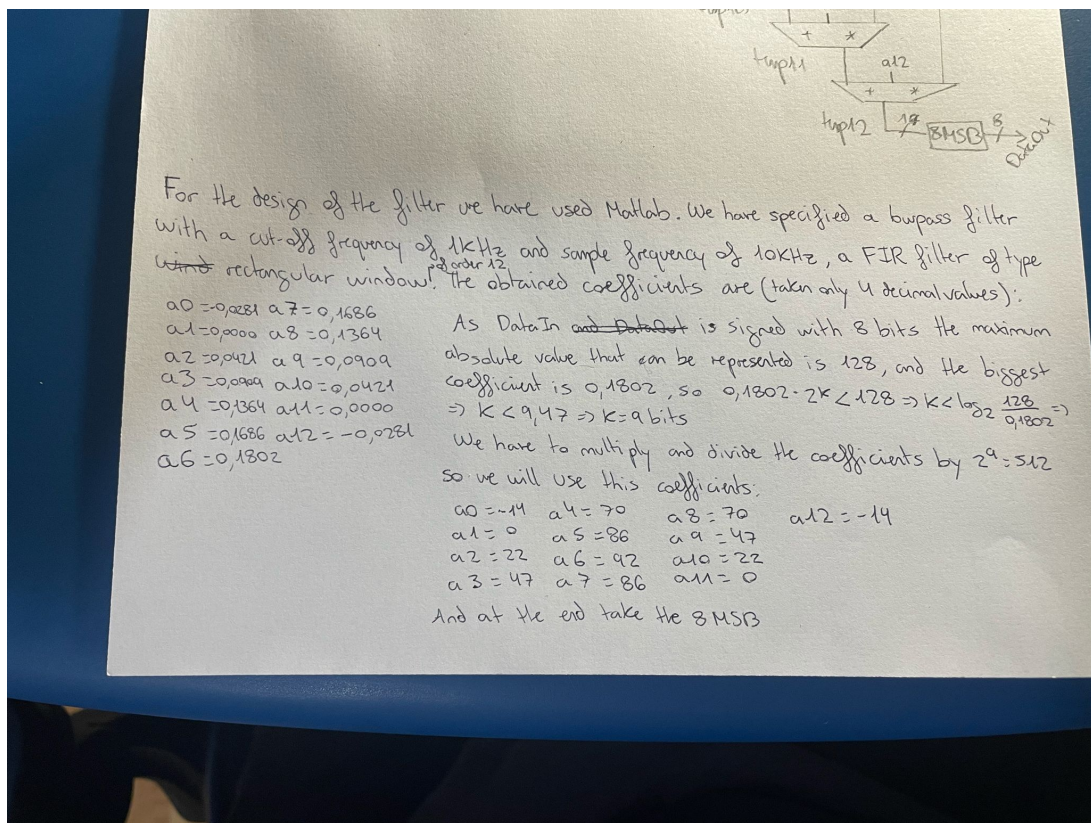 + *
tmp11 a12
+ *
tmp12 17 8MSB 8 DataOut
For the design of the filter we have used Matlab. We have specified a lowpass filter
with a cut-off frequency of 1kHz and sample frequency of 10kHz, a FIR filter of type
wind rectangular window of order 12. The obtained coefficients are (taken only 4 decimal values):
a0=-0,0281 a7=0,1686
a1=0,0000 a8=0,1364
a2=0,0421 a9=0,0909
a3=0,0909 a10=0,0421
a4=0,1364 a11=0,0000
a5=0,1686 a12=-0,0281
a6=0,1802
As DataIn and DataOut is signed with 8 bits the maximum
absolute value that can be represented is 128, and the biggest
coefficient is 0,1802, so 0,1802·2^k<128 => k<log2 128/0,1802 =>
=> k<9,47 => k=9 bits
We have to multiply and divide the coefficients by 2^9=512
so we will use this coefficients:
a0=-14 a4=70 a8=70 a12=-14
a1=0 a5=86 a9=47
a2=22 a6=92 a10=22
a3=47 a7=86 a11=0
And at the end take the 8MSB